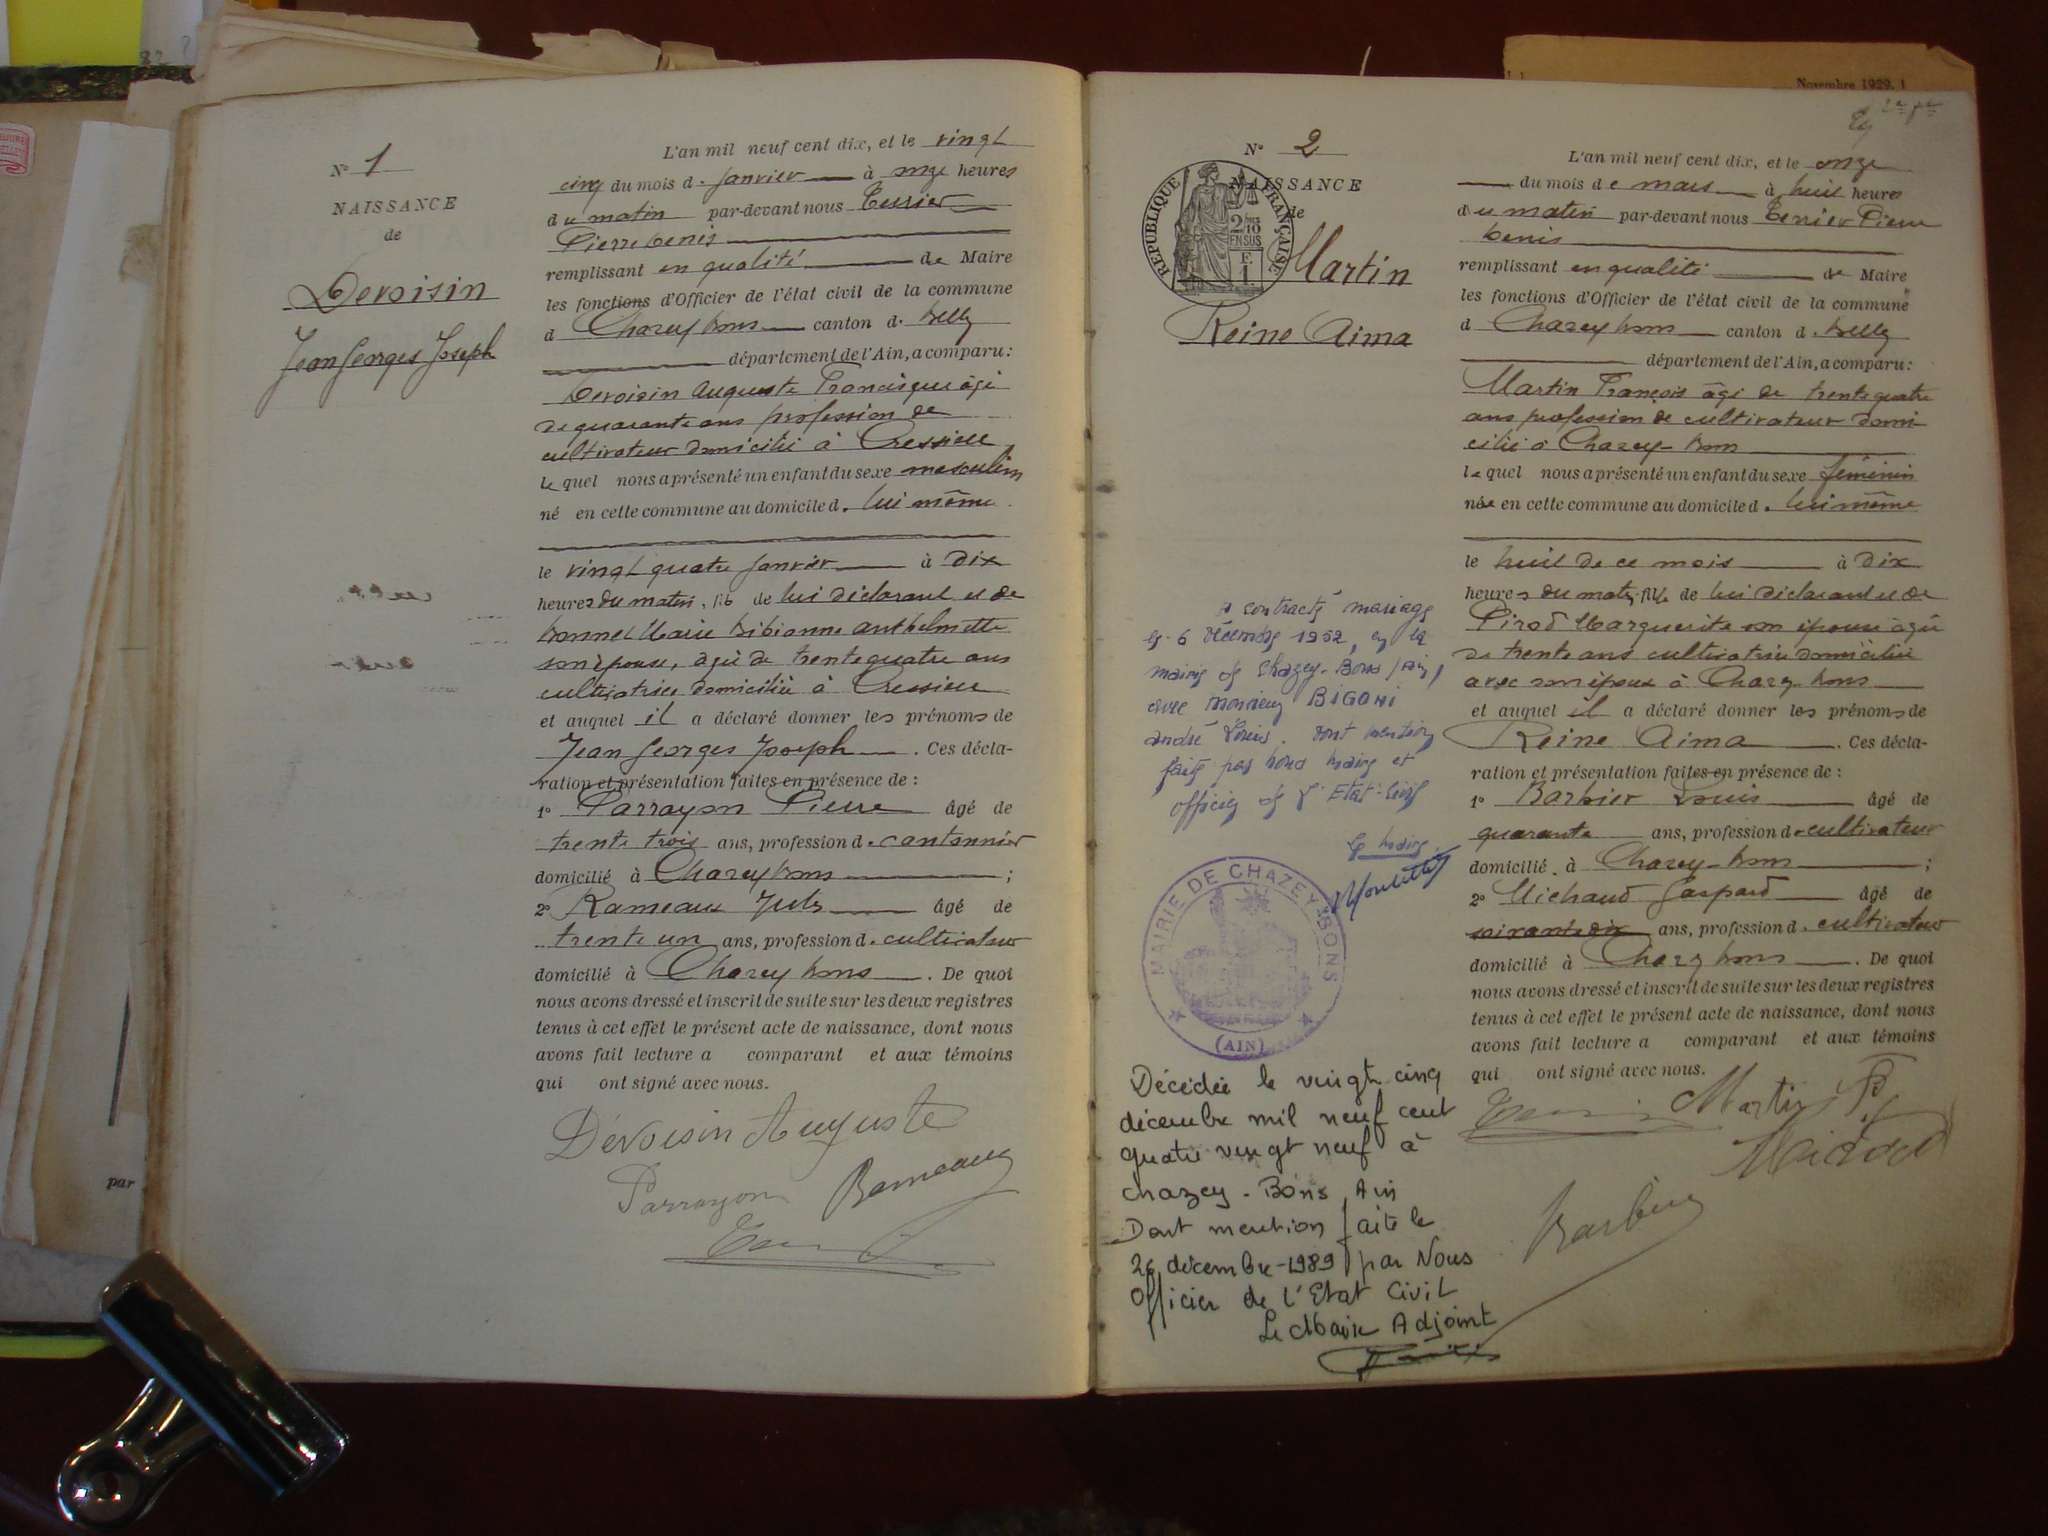 Nº 1
NAISSANCE
de
Devoisin
Jean Georges Joseph
L'an mil neuf cent dix, et le vingt
cinq du mois d. janvier à onze heures
du matin par-devant nous Terrier
Pierre Denis
remplissant en qualité de Maire
les fonctions d'Officier de l'état civil de la commune
d Chazey Bons canton d. Belley
département de l'Ain, a comparu:
Devoisin Auguste Francisque âgé
de quarante ans profession de
cultivateur domicilié à Cressieu
lequel nous a présenté un enfant du sexe masculin
né en cette commune au domicile d. lui même
le vingt quatre janvier à dix
heures du matin, fils de lui déclarant et de
Bonnet Marie Bibianne Anthelmette
son épouse, âgée de trente quatre ans
cultivatrice domiciliée à Cressieu
et auquel il a déclaré donner les prénoms de
Jean Georges Joseph. Ces décla-
ration et présentation faites en présence de :
1º Parrayon Pierre âgé de
trente trois ans, profession d. cantonnier
domicilié à Chazey Bons ;
2º Rameaux Jules âgé de
trente un ans, profession d. cultivateur
domicilié à Chazey Bons. De quoi
nous avons dressé et inscrit de suite sur les deux registres
tenus à cet effet le présent acte de naissance, dont nous
avons fait lecture a comparant et aux témoins
qui ont signé avec nous.
Devoisin Auguste
Parrayon Rameaux
par
Novembre 1929. 1
Nº 2
NAISSANCE
de
RÉPUBLIQUE FRANÇAISE
2/10
EN SUS
Martin
Reine Aima
L'an mil neuf cent dix, et le onze
du mois de mars à huit heures
du matin par-devant nous Terrier Pierre
Denis
remplissant en qualité de Maire
les fonctions d'Officier de l'état civil de la commune
d Chazey Bons canton d. Belley
département de l'Ain, a comparu:
Martin François âgé de trente quatre
ans profession de cultivateur domi
cilié à Chazey-Bons
lequel nous a présenté un enfant du sexe féminin
née en cette commune au domicile d. lui même
le huit de ce mois à dix
heures du matin, fille de lui déclarant et de
Pirod Marguerite son épouse âgée
de trente ans cultivatrice domiciliée
avec son époux à Chazey-Bons
et auquel il a déclaré donner les prénoms de
Reine Aima. Ces décla-
ration et présentation faites en présence de :
1º Barbier Louis âgé de
quarante ans, profession d. cultivateur
domicilié. à Chazey-Bons ;
2º Michaud Gaspard âgé de
soixante dix ans, profession d. cultivateur
domicilié à Chazey Bons. De quoi
nous avons dressé et inscrit de suite sur les deux registres
tenus à cet effet le présent acte de naissance, dont nous
avons fait lecture a comparant et aux témoins
qui ont signé avec nous.
Martin
Barbier
a contracté mariage
le 6 Décembre 1952, en la
mairie de Chazey-Bons (Ain)
avec Monsieur BIGONI
André Louis. Dont mention
faite par nous maire et
officier de l'Etat-Civil
Le maire.
MAIRIE DE CHAZEY-BONS
(AIN)
Décédée le vingt cinq
décembre mil neuf cent
quatre vingt neuf à
Chazey-Bons Ain
Dont mention faite le
26 décembre-1989 par Nous
Officier de l'Etat Civil
Le Maire Adjoint